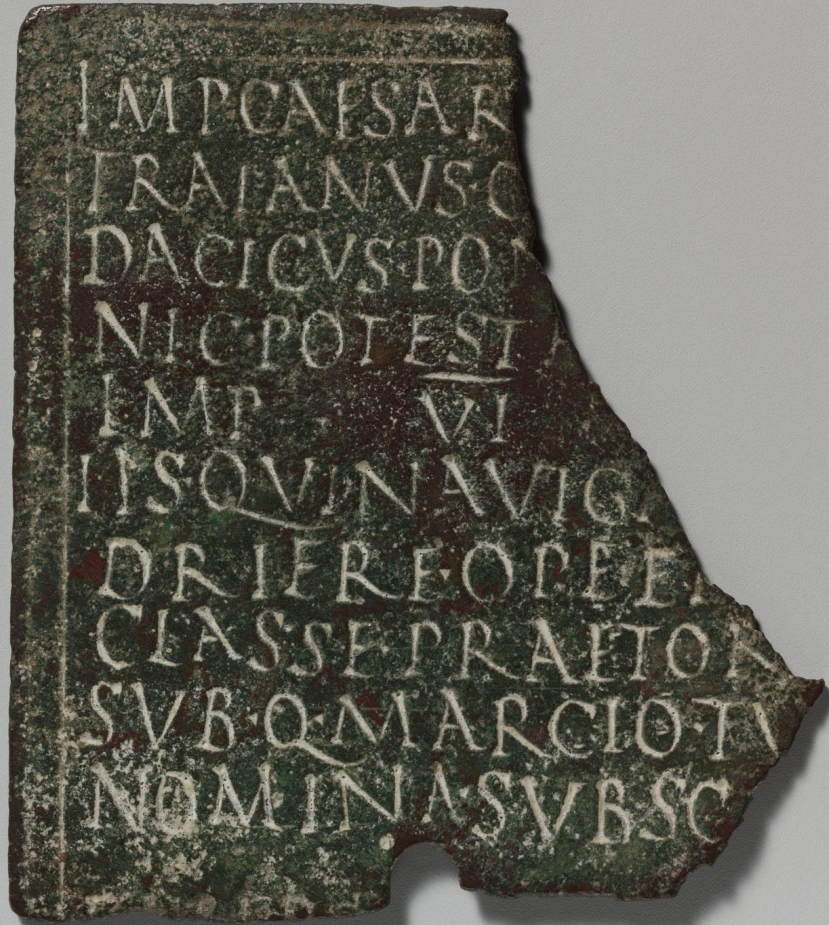 IMP CAESAR
TRAIANVS·
DACICVS·PO
NIC POTEST
IMP VI
IIS·QVI NAVIG
D RIERE·OPE E
CLASSE·PRAETOR
SVB·Q·MARCIO·TV
NOMINA·SVBSC